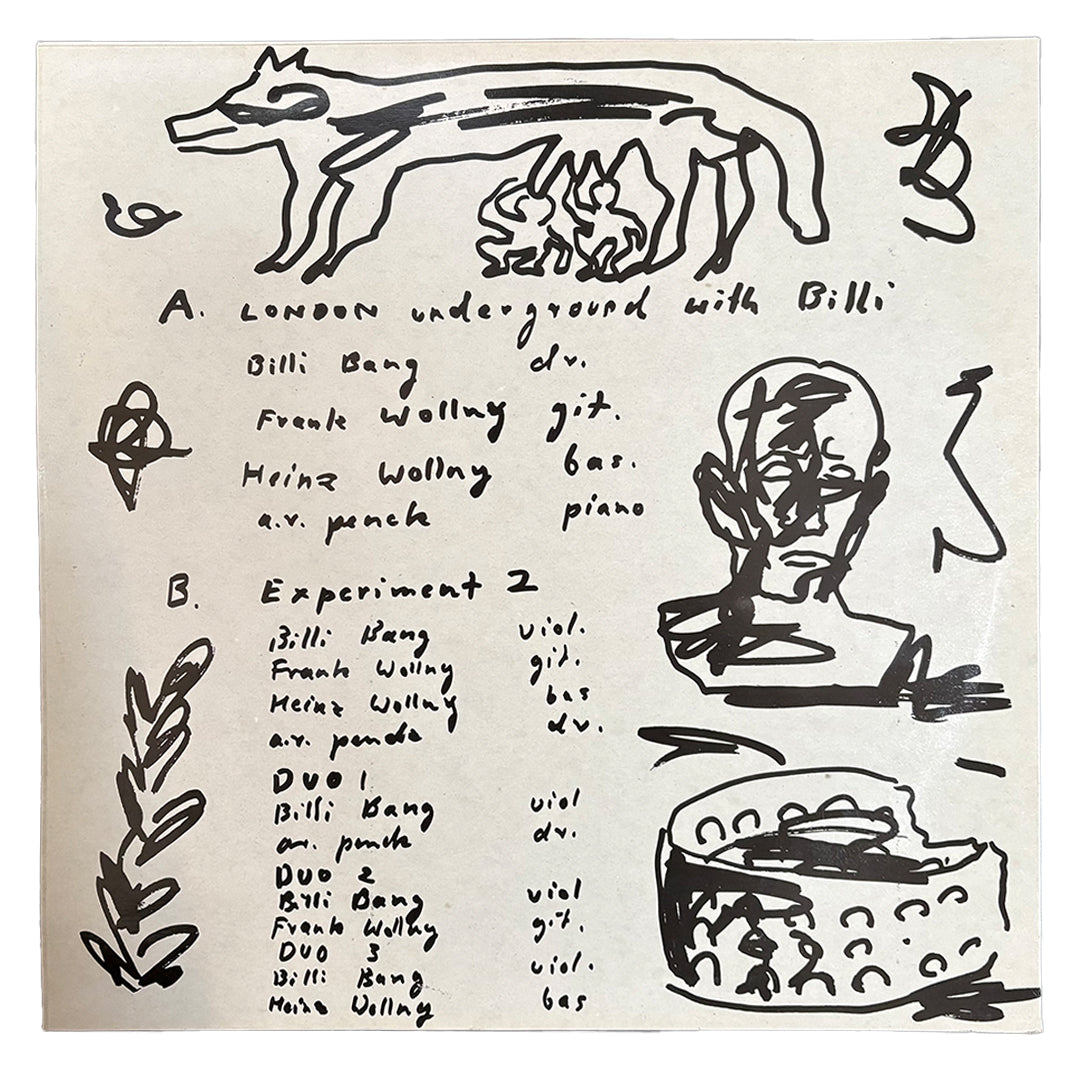 A. LONDON underground with Billi
Billi Bang dv.
Frank Wollny git.
Heinz Wollny bas.
a.r. penck piano
B. Experiment 2
Billi Bang viol.
Frank Wollny git.
Heinz Wollny bas
a.r. penck dr.
DUO 1
Billi Bang viol
a.r. penck dr.
DUO 2
Billi Bang viol
Frank Wollny git.
DUO 3
Billi Bang viol.
Heinz Wollny bas